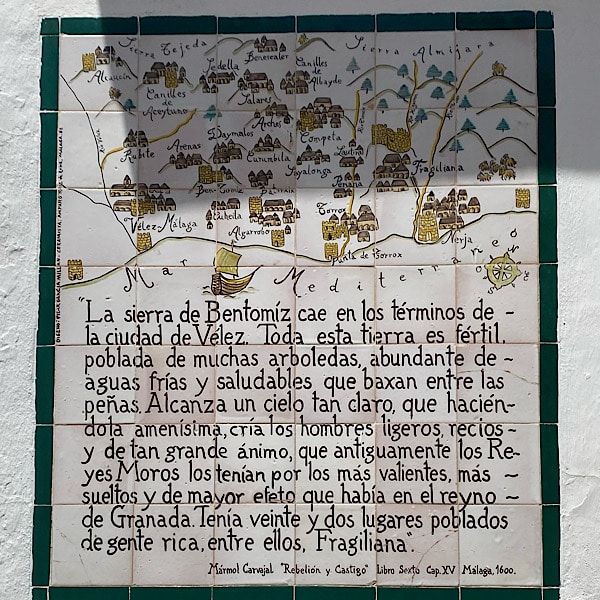 Sierra Tejeda
Sierra Almijara
Alcaucín
Sedella
Benescaler
Canilles de Albaydo
Canilles de Aceytuno
Salares
Arches
Competa
Daymalos
Rubite
Arenas
Curumbila
Sayalonga
Lautín
Fragiliana
Ben-Tomiz
Batraix
Periana
Vélez-Málaga
Algarrobo
Torrox
Nerja
Punta de Torrox
Mar Mediterraneo
"La sierra de Bentomíz cae en los términos de -
la ciudad de Vélez. Toda esta tierra es fértil,
poblada de muchas arboledas, abundante de -
aguas frías y saludables, que baxan entre las
peñas. Alcanza un cielo tan claro, que hacién-
dola amenísima, cría los hombres ligeros, recios -
y de tan grande ánimo, que antiguamente los Re-
yes Moros los tenían por los más valientes, más -
sueltos y de mayor efeto que había en el reyno -
de Granada. Tenía veinte y dos lugares poblados
de gente rica, entre ellos, Fragiliana".
Mármol Carvajal "Rebelión y Castigo" Libro Sexto Cap. XV Málaga, 1600.